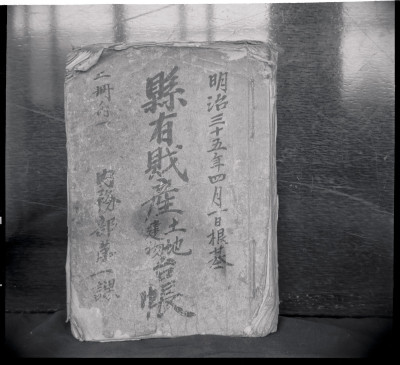 明治三十五年四月一日根基
縣有財産土地建物台帳
二冊合一
財務部第一課